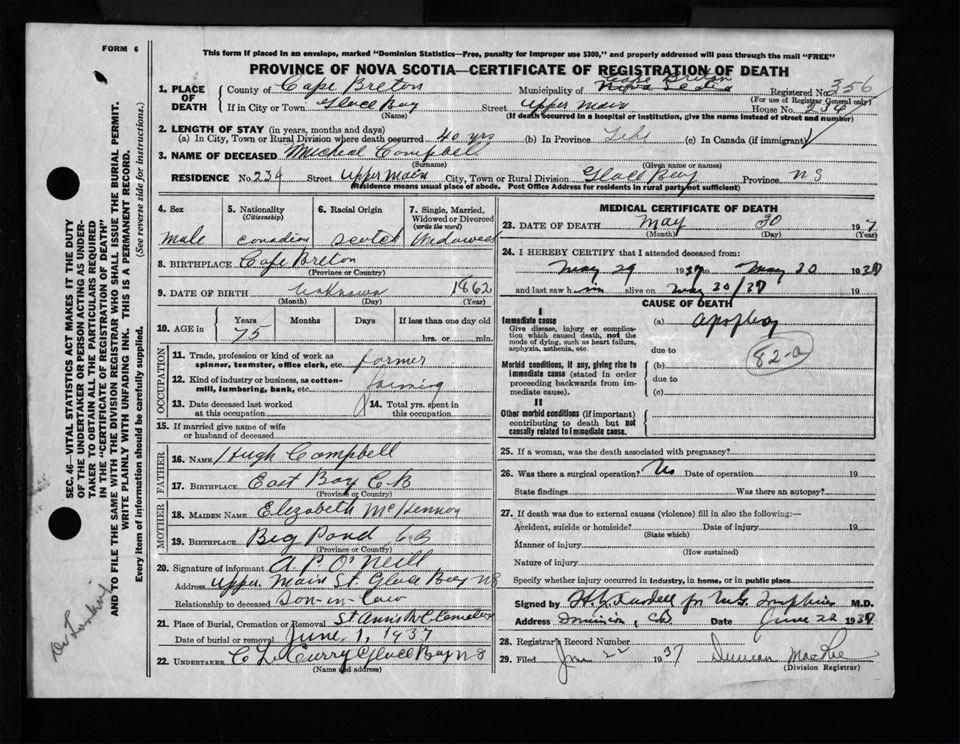 FORM 6
This form if placed in an envelope, marked "Dominion Statistics—Free, penalty for improper use $300," and properly addressed will pass through the mail "FREE"
PROVINCE OF NOVA SCOTIA—CERTIFICATE OF REGISTRATION OF DEATH
1. PLACE OF DEATH
County of Cape Breton Municipality of Cape Breton Nova Scotia Registered No. 356
(For use of Registrar General only)
If in City or Town Glace Bay Street Upper Main House No. 234
(Name) (If death occurred in a hospital or institution, give the name instead of street and number)
2. LENGTH OF STAY (in years, months and days)
(a) In City, Town or Rural Division where death occurred 40 yrs (b) In Province Life (c) In Canada (if immigrant)
3. NAME OF DECEASED Micheal Campbel
(Surname) (Given name or names)
RESIDENCE No. 234 Street Upper Main City, Town or Rural Division Glace Bay Province NS
(Residence means usual place of abode. Post Office Address for residents in rural party not sufficient)
4. Sex
male
5. Nationality
(Citizenship)
Canadian
6. Racial Origin
Scotch
7. Single, Married, Widowed or Divorced
(write the word)
Widowed
8. BIRTHPLACE Cape Breton
(Province or Country)
9. DATE OF BIRTH Unknown 1862
(Month) (Day) (Year)
10. AGE in Years Months Days If less than one day old
75 hrs. or min.
OCCUPATION
11. Trade, profession or kind of work as spinner, teamster, office clerk, etc. Farmer
12. Kind of industry or business, as cotton-mill, lumbering, bank, etc. farming
13. Date deceased last worked at this occupation
14. Total yrs. spent in this occupation
15. If married give name of wife or husband of deceased
FATHER
16. NAME Hugh Campbell
17. BIRTHPLACE East Bay C B
(Province or Country)
MOTHER
18. MAIDEN NAME Elizabeth McKennon
19. BIRTHPLACE Big Pond CB
(Province or Country)
20. Signature of informant A. P. O'Neill
Address Upper Main St. Glace Bay NS
Relationship to deceased Son-in-law
21. Place of Burial, Cremation or Removal St Anns R C Cemetery
Date of burial or removal June 1, 1937
22. UNDERTAKER C L Curry Glace Bay NS
(Name and address)
MEDICAL CERTIFICATE OF DEATH
23. DATE OF DEATH May 30 1937
(Month) (Day) (Year)
24. I HEREBY CERTIFY that I attended deceased from:
May 29 1937 to May 30 1937
and last saw him alive on May 30/37 19
CAUSE OF DEATH
I
Immediate cause
Give disease, injury or complication which caused death, not the mode of dying, such as heart failure, asphyxia, asthenia, etc.
(a) Apoplexy
due to
82-a
Morbid conditions, if any, giving rise to immediate cause (stated in order proceeding backwards from immediate cause).
(b)
due to
(c)
II
Other morbid conditions (if important) contributing to death but not causally related to immediate cause.
25. If a woman, was the death associated with pregnancy?
26. Was there a surgical operation? No Date of operation 19
State findings Was there an autopsy?
27. If death was due to external causes (violence) fill in also the following:—
Accident, suicide or homicide? Date of injury 19
(State which)
Manner of injury
(How sustained)
Nature of injury
Specify whether injury occurred in industry, in home, or in public place
Signed by for M.G. Tompkins M.D.
Address Dominion, CB Date June 22 1937
28. Registrar's Record Number
29. Filed Jun 22 1937 Duncan MacRae
(Division Registrar)
SEC. 46—VITAL STATISTICS ACT MAKES IT THE DUTY
OF THE UNDERTAKER OR PERSON ACTING AS UNDER-
TAKER TO OBTAIN ALL THE PARTICULARS REQUIRED
IN THE "CERTIFICATE OF REGISTRATION OF DEATH"
AND TO FILE THE SAME WITH THE DIVISION REGISTRAR WHO SHALL ISSUE THE BURIAL PERMIT.
WRITE PLAINLY WITH UNFADING INK. THIS IS A PERMANENT RECORD.
Every item of information should be carefully supplied. (See reverse side for instructions.)